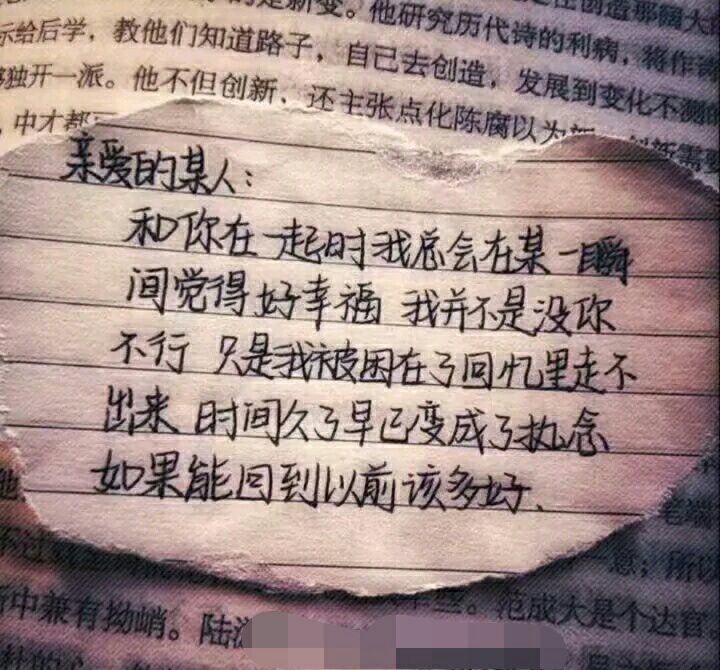 是新变。他研究历代诗的利病，将作
示给后学，教他们知道路子，自己去创造，发展到变化不测的
独开一派。他不但创新，还主张点化陈腐以为
，中才都
亲爱的某人：
和你在一起时我总会在某一瞬
间觉得好幸福 我并不是没你
不行 只是我被困在了回忆里走不
出来 时间久了早已变成了执念
如果能回到以前该多好、
不过
意；所以
中兼有拗峭。陆游
范成大是个达官